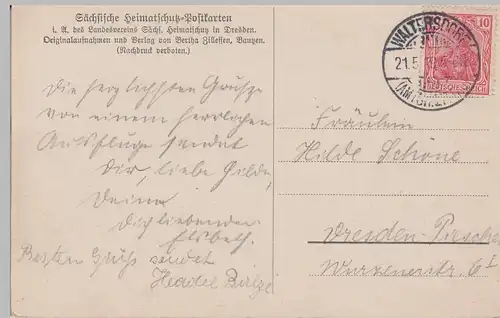 Sächsische Heimatschutz-Postkarten
i. A. des Landesvereins Sächs. Heimatschutz in Dresden.
Originalaufnahmen und Verlag von Bertha Zillessen, Bautzen.
(Nachdruck verboten.)
Die herzlichsten Grüße
von einem herrlichen
Ausfluge sendet
Dir, liebe Hilde,
Deine
Dich liebende
Elsbeth.
Besten Gruß sendet
WALTERSDORF
21.5.
10
Fräulein
Hilde Schöne
Dresden-Pieschen
Wurzenerstr. 6 I